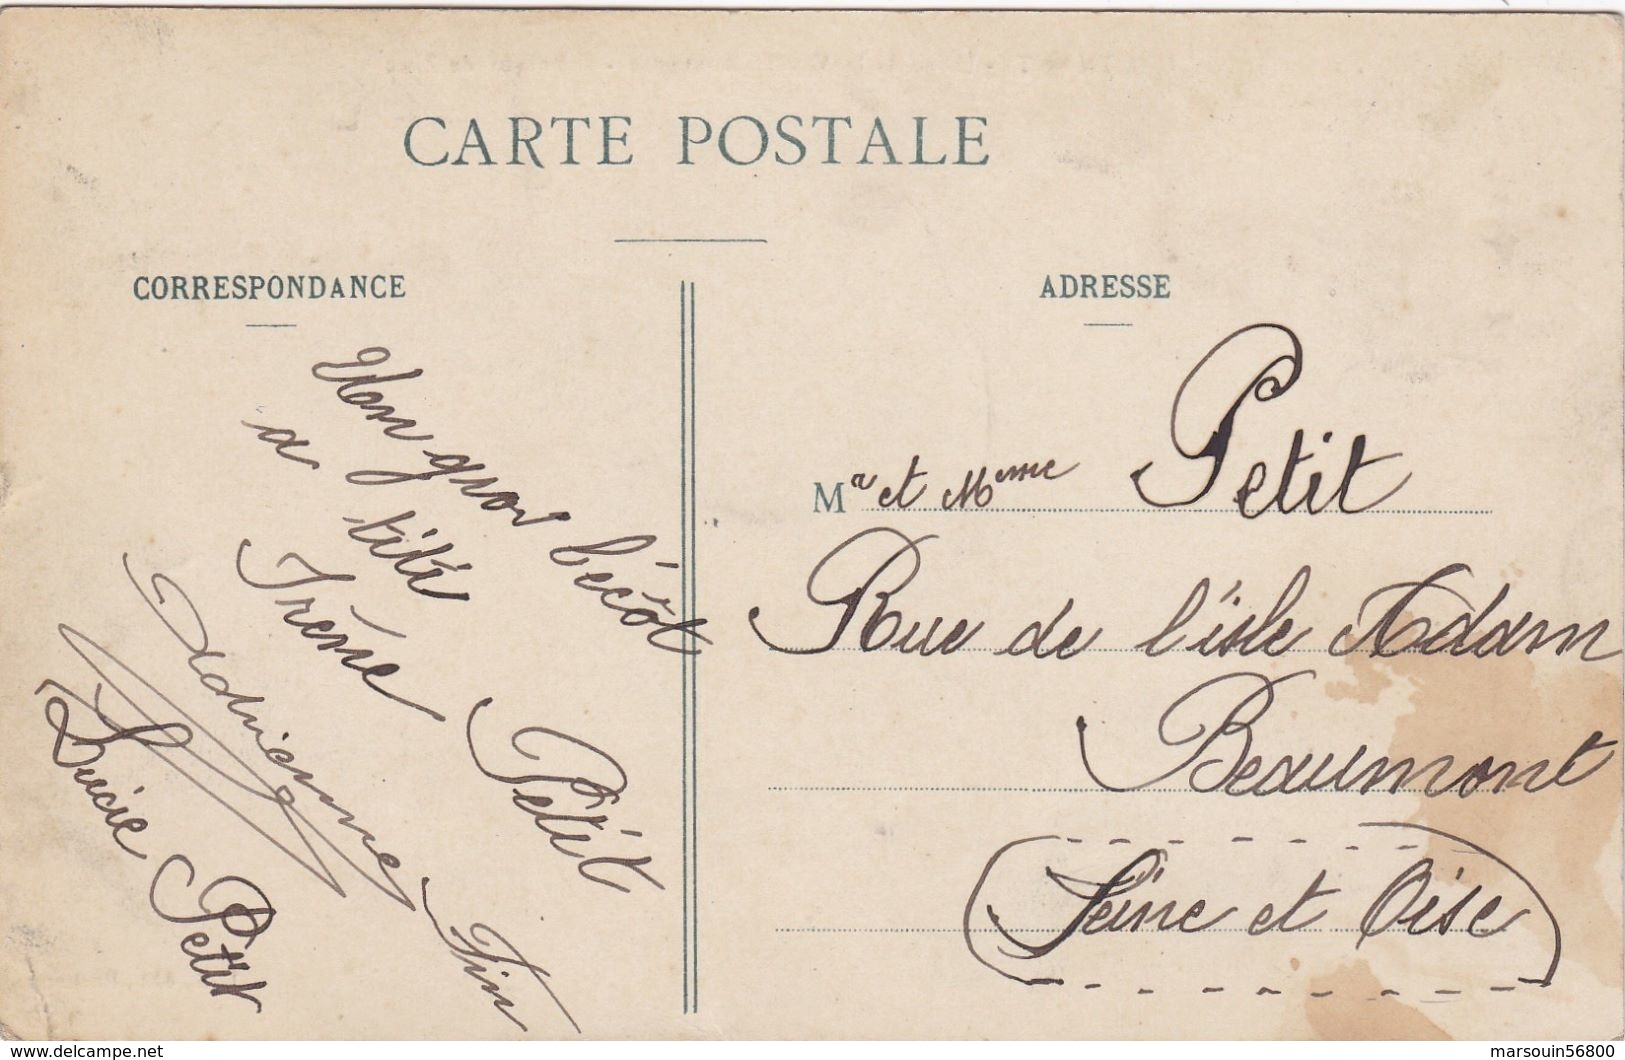 CARTE POSTALE
CORRESPONDANCE
Un gros bécôt
a titi
Irène Petit
Adrienne Fin
Lucie Petit
ADRESSE
Mr et Mme Petit
Rue de l'isle Adam
Beaumont
Seine et Oise
www.delcampe.net
marsouin56800